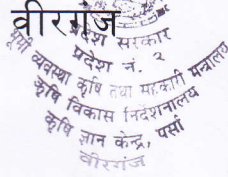 वीरगंज
प्रदेश सरकार
प्रदेश नं. २
भूमी व्यवस्था कृषि तथा सहकारी मन्त्रालय
कृषि विकास निर्देशनालय
कृषि ज्ञान केन्द्र, पर्सा
वीरगंज